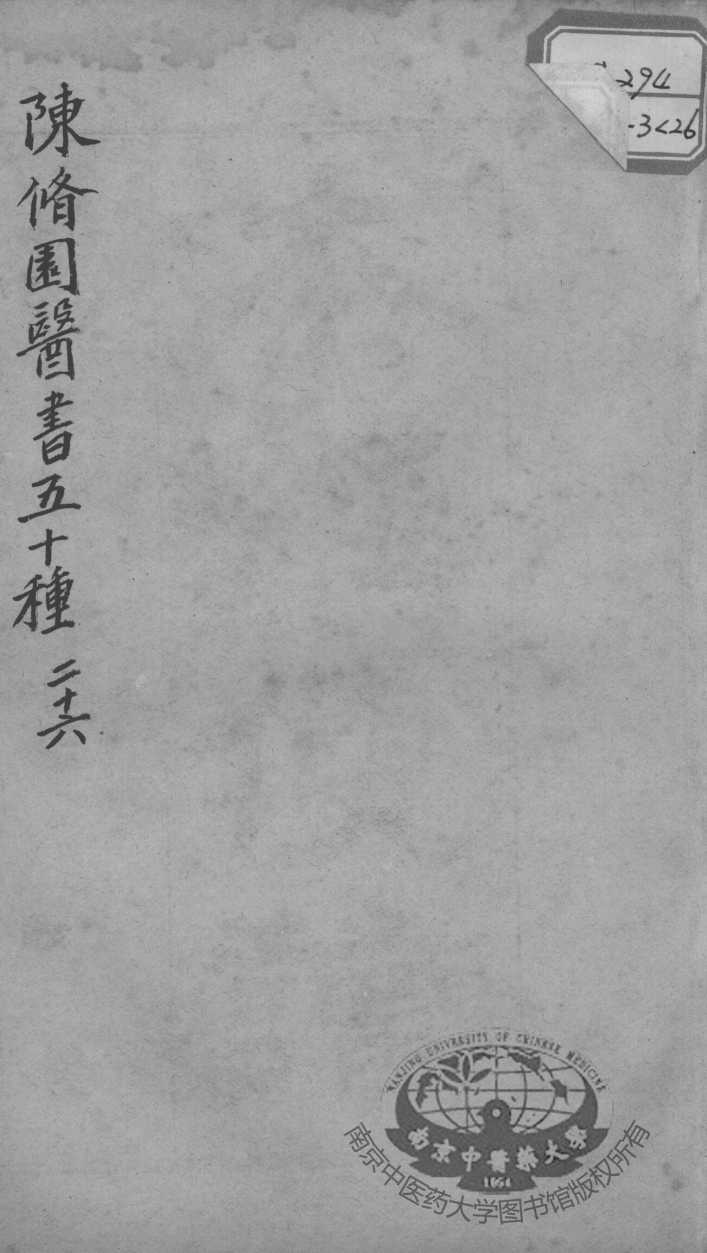 294
-3<26
陳脩園醫書五十種 二十六
NANJING UNIVERSITY OF CHINESE MEDICINE
南京中醫藥大學
1954
南京中医药大学图书馆版权所有